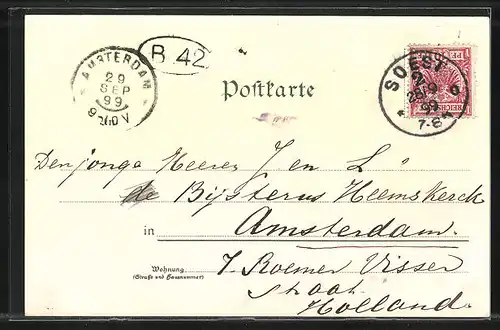 AMSTERDAM
29
SEP
99
B 42
Postkarte
SOEST
28/9
99
7-8
PFENNIG
REICHSPOST
Den jonge Heeren J en L
de Bijsterus Heemskerck
in Amsterdam.
Wohnung
(Straße und Hausnummer)
7. Roemer Visser
straat
Holland.